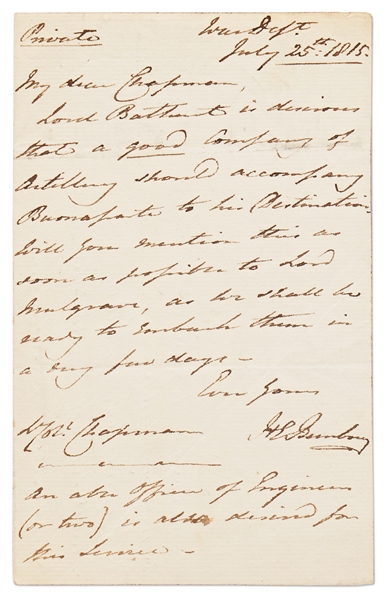 Private
War Dept.
July 25th. 1815.
My dear Chapman,
Lord Bathurst is desirous
that a good Company of
Artillery should accompany
Buonaparte to his Destination.
Will you mention this as
soon as possible to Lord
Mulgrave, as we shall be
ready to embark them in
a very few days —
Ever Yours
HEBunbury
Lt. Col. Chapman
An able Officer of Engineers
(or two) is also desired for
this Service —